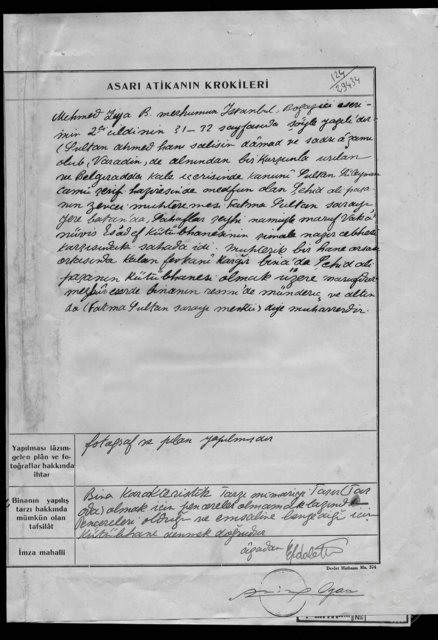 124
29434
ASARI ATİKANIN KROKİLERİ
Mehmed Ziya B. merhumun İstanbul, Boğaziçi eseri-
nin 2nci cildinin 31-32 sayfasında şöyle yazılıdır
(Sultan ahmed han salisin dâmad ve sadrı âzamı
olub, Varadin, de alnından bir kurşunla urulan
ve Belgıradda kale içerisinde kanunî Sultan Süleyman
camii şerif haziresinde medfun olan Şehid ali paşa-
nın zevcei muhteremesi Fatma Sultan sarayı
yere batan'da, Sahaflar şeyhi namıyle maruf Vak'a
nüvis Es'ad ef kütübhanesinin şimale nazır cebhesi
karşısındaki sahada idi. muhterik bir hane arsası
arkasında kalan fevkanî kârgir bina'da Şehid ali
paşanın Kütübhanesi olmak üzere maruftur
mezkûr eserde binanın resmi de münderiç ve altın-
da (Fatma Sultan sarayı menkui) diye muharrerdir.
Yapılması lâzım-
gelen plân ve fo-
toğraflar hakkında
ihtar
fotoğraf ve pilan yapılmıştır
Binanın yapılış
tarzı hakkında
mümkün olan
tafsilât
Bina Karakteristik Tarzı mimarîyi Taşır (Taş
oda) olmak için pencereler olmamak lazımdır
Pencereleri olduğu ve emsaline benzediği için
Kütübhane denmek doğrudur
İmza mahalli
Devlet Matbaası Ma. 374